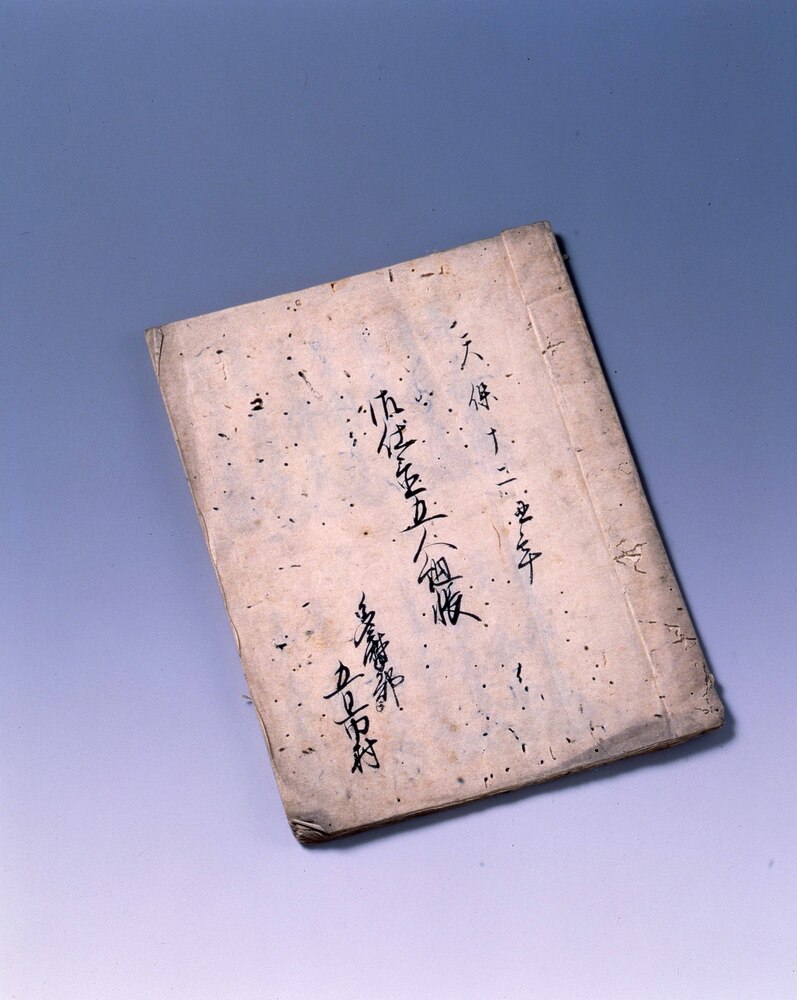 天保十二丑年
御仕置五人組帳
多摩郡
五日市村